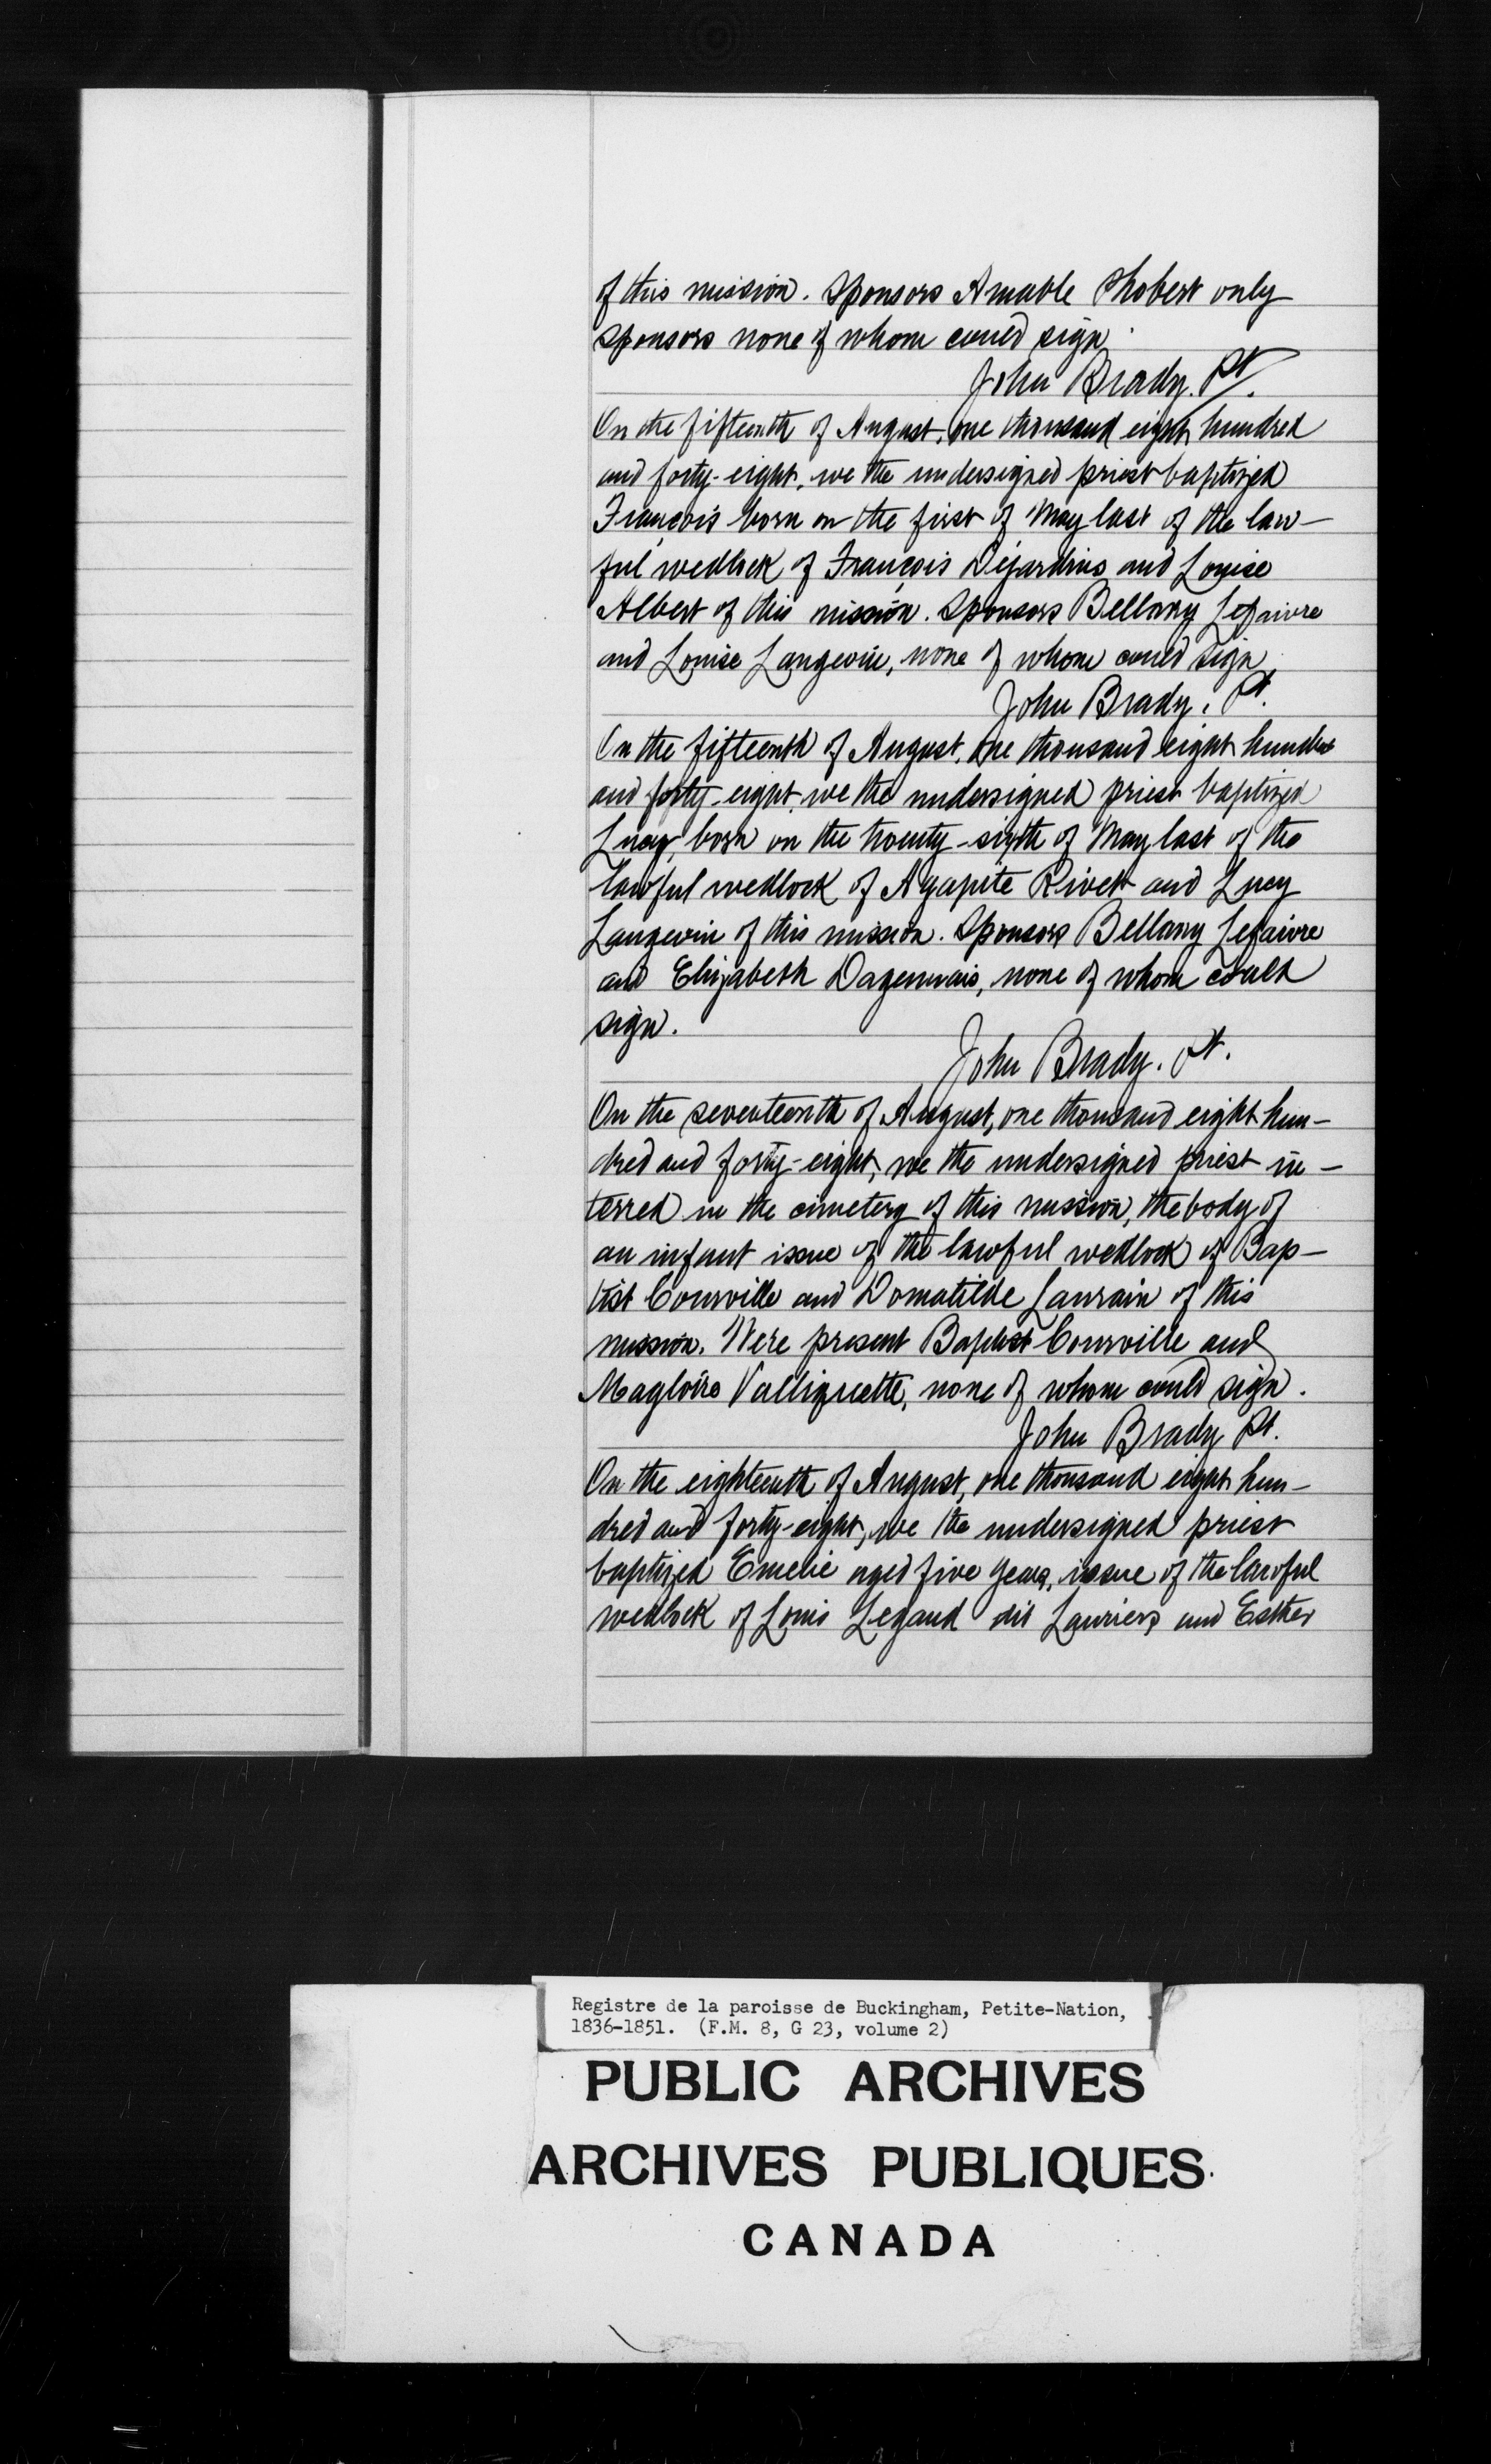 of this mission. Sponsors Amable Thobert only
sponsors none of whom could sign.
John Brady. Pt.
On the fifteenth of August, one thousand eight hundred
and forty-eight, we the undersigned priest baptized
François born on the first of May last of the law-
ful wedlock of François Déjardins and Louise
Albert of this mission. Sponsors Bellony Lefaivre
and Louise Langevin, none of whom could sign.
John Brady. Pt.
On the fifteenth of August, one thousand eight hundred
and forty-eight, we the undersigned priest baptized
Lucy, born on the twenty-sixth of May last of the
lawful wedlock of Agapite Rivet and Lucy
Langevin of this mission. Sponsors Bellony Lefaivre
and Elizabeth Dagennais, none of whom could
sign.
John Brady. Pt.
On the seventeenth of August, one thousand eight hun-
dred and forty-eight, we the undersigned priest in-
terred in the cimetery of this mission, the body of
an infant issue of the lawful wedlock of Bap-
tist Courville and Domatilde Laurain of this
mission. Were present Baptist Courville and
Magloire Valliquette, none of whom could sign.
John Brady Pt.
On the eighteenth of August, one thousand eight hun-
dred and forty-eight, we the undersigned priest
baptized Emelie aged five years, issue of the lawful
wedlock of Louis Legaud dit Lauriers and Esther
Registre de la paroisse de Buckingham, Petite-Nation,
1836-1851. (F.M. 8, G 23, volume 2)
PUBLIC ARCHIVES
ARCHIVES PUBLIQUES
CANADA